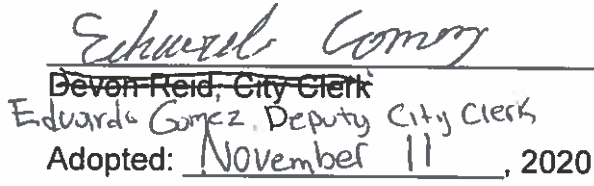 Eduardo Gomez
Devon Reid, City Clerk
Eduardo Gomez, Deputy City Clerk
Adopted: November 11, 2020